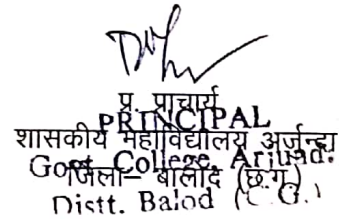 प्र. प्राचार्य
PRINCIPAL
शासकीय महाविद्यालय अर्जुन्दा
Govt. College, Arjund.
जिला– बालोद (छ.ग.)
Distt. Balod (C. G.)